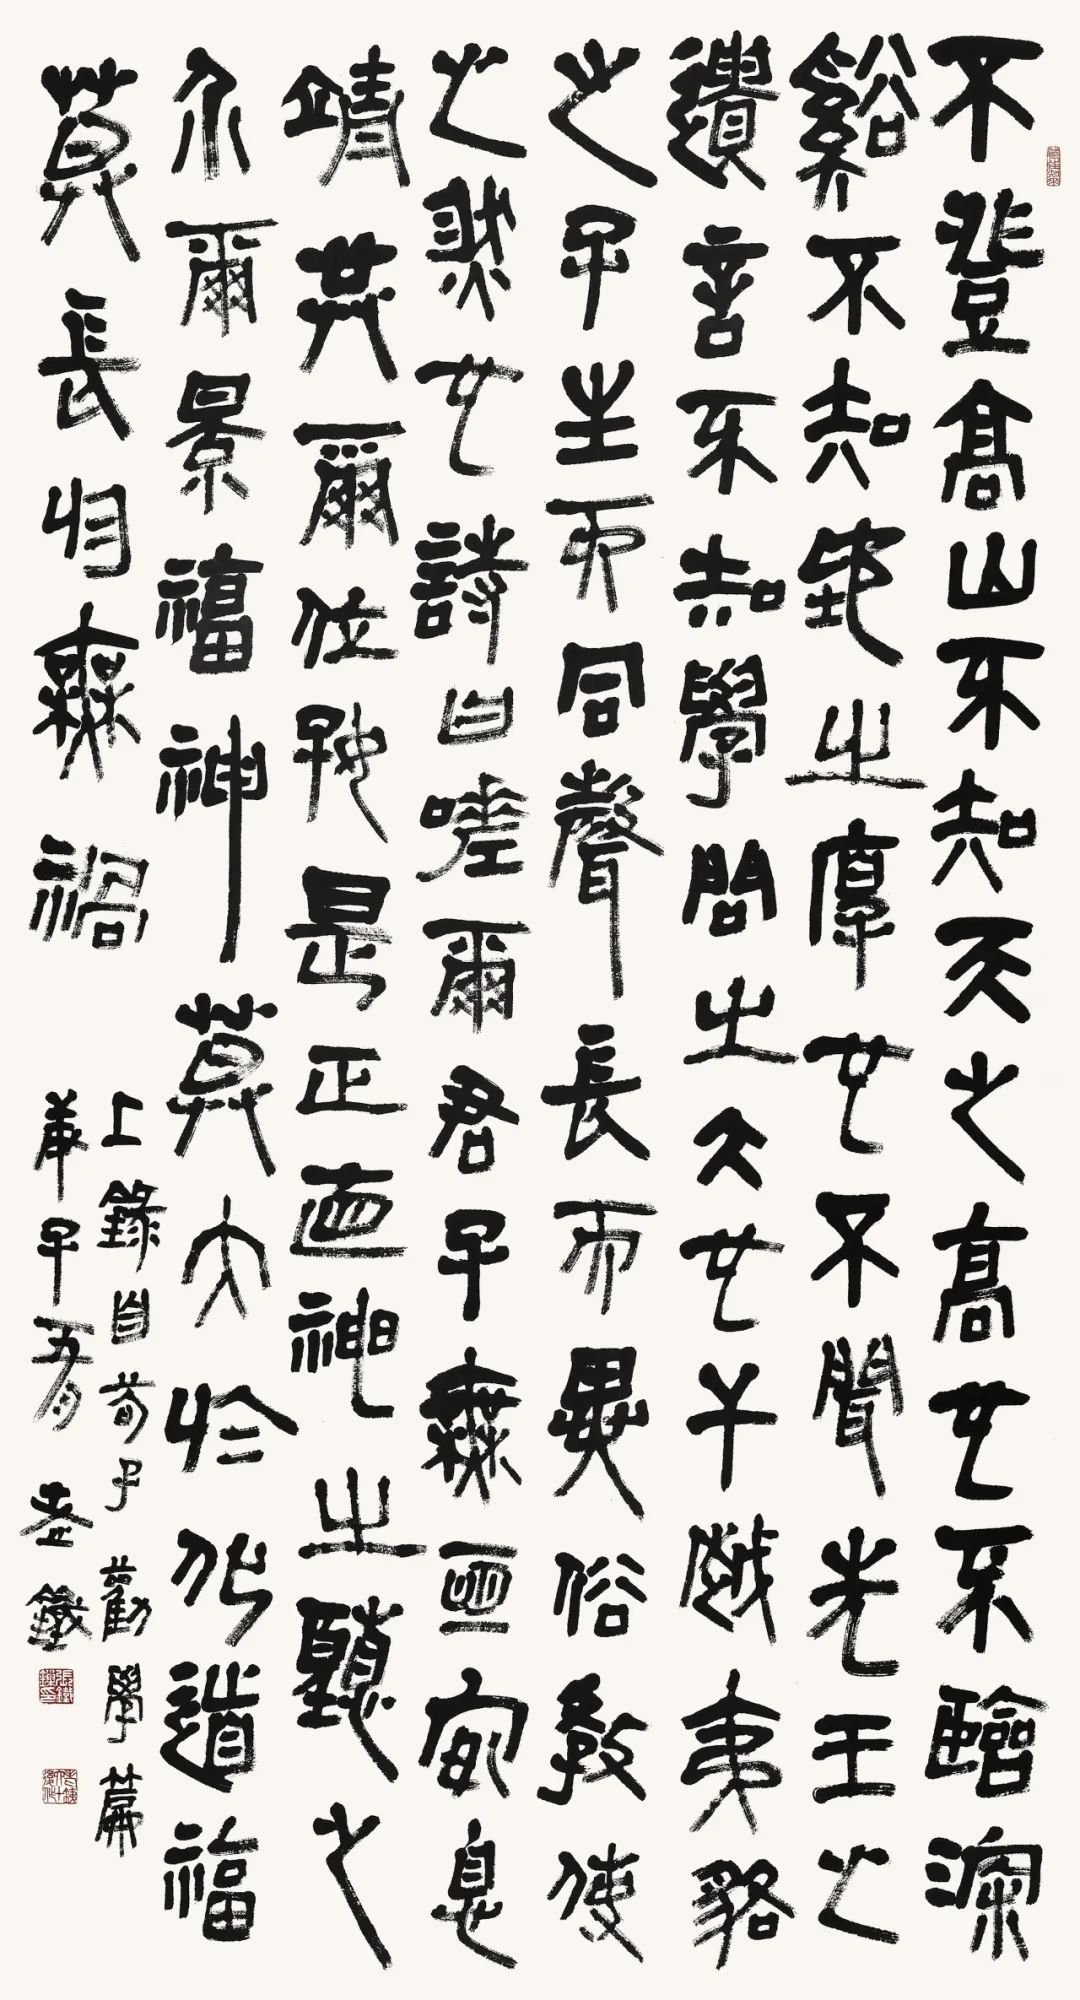 不登高山不知天之高也不臨深
谿不知地之厚也不聞先王之
遺言不知學問之大也干越夷貉
之子生而同聲長而異俗教使
之然也詩曰嗟爾君子無恆安息
靖共爾位好是正直神之聽之
介爾景福神莫大於化道福
莫長於無禍
上錄自荀子勸學篇
庚子五月老鐵